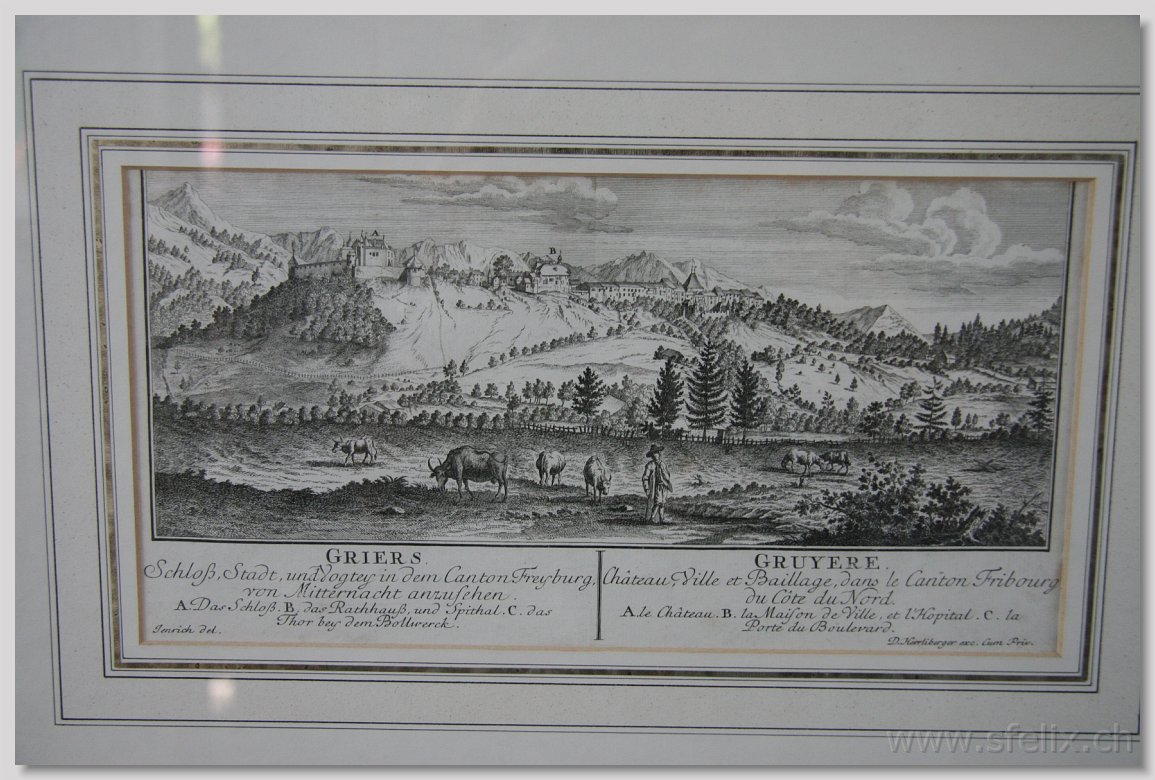 A
B
C
GRIERS.
Schloß, Stadt, und Vogtey in dem Canton Freyburg,
von Mitternacht anzusehen.
A. Das Schloß. B. das Rathhauß, und Spithal. C. das
Thor bey dem Bollwerck.
Jenrich del.
GRUYERE.
Château, Ville et Baillage, dans le Canton Fribourg
du Côté du Nord.
A. le Château. B. la Maison de Ville, et l'Hopital. C. la
Porte du Boulevard.
D. Herrliberger exc. Cum Priv.
www.sfelix.ch